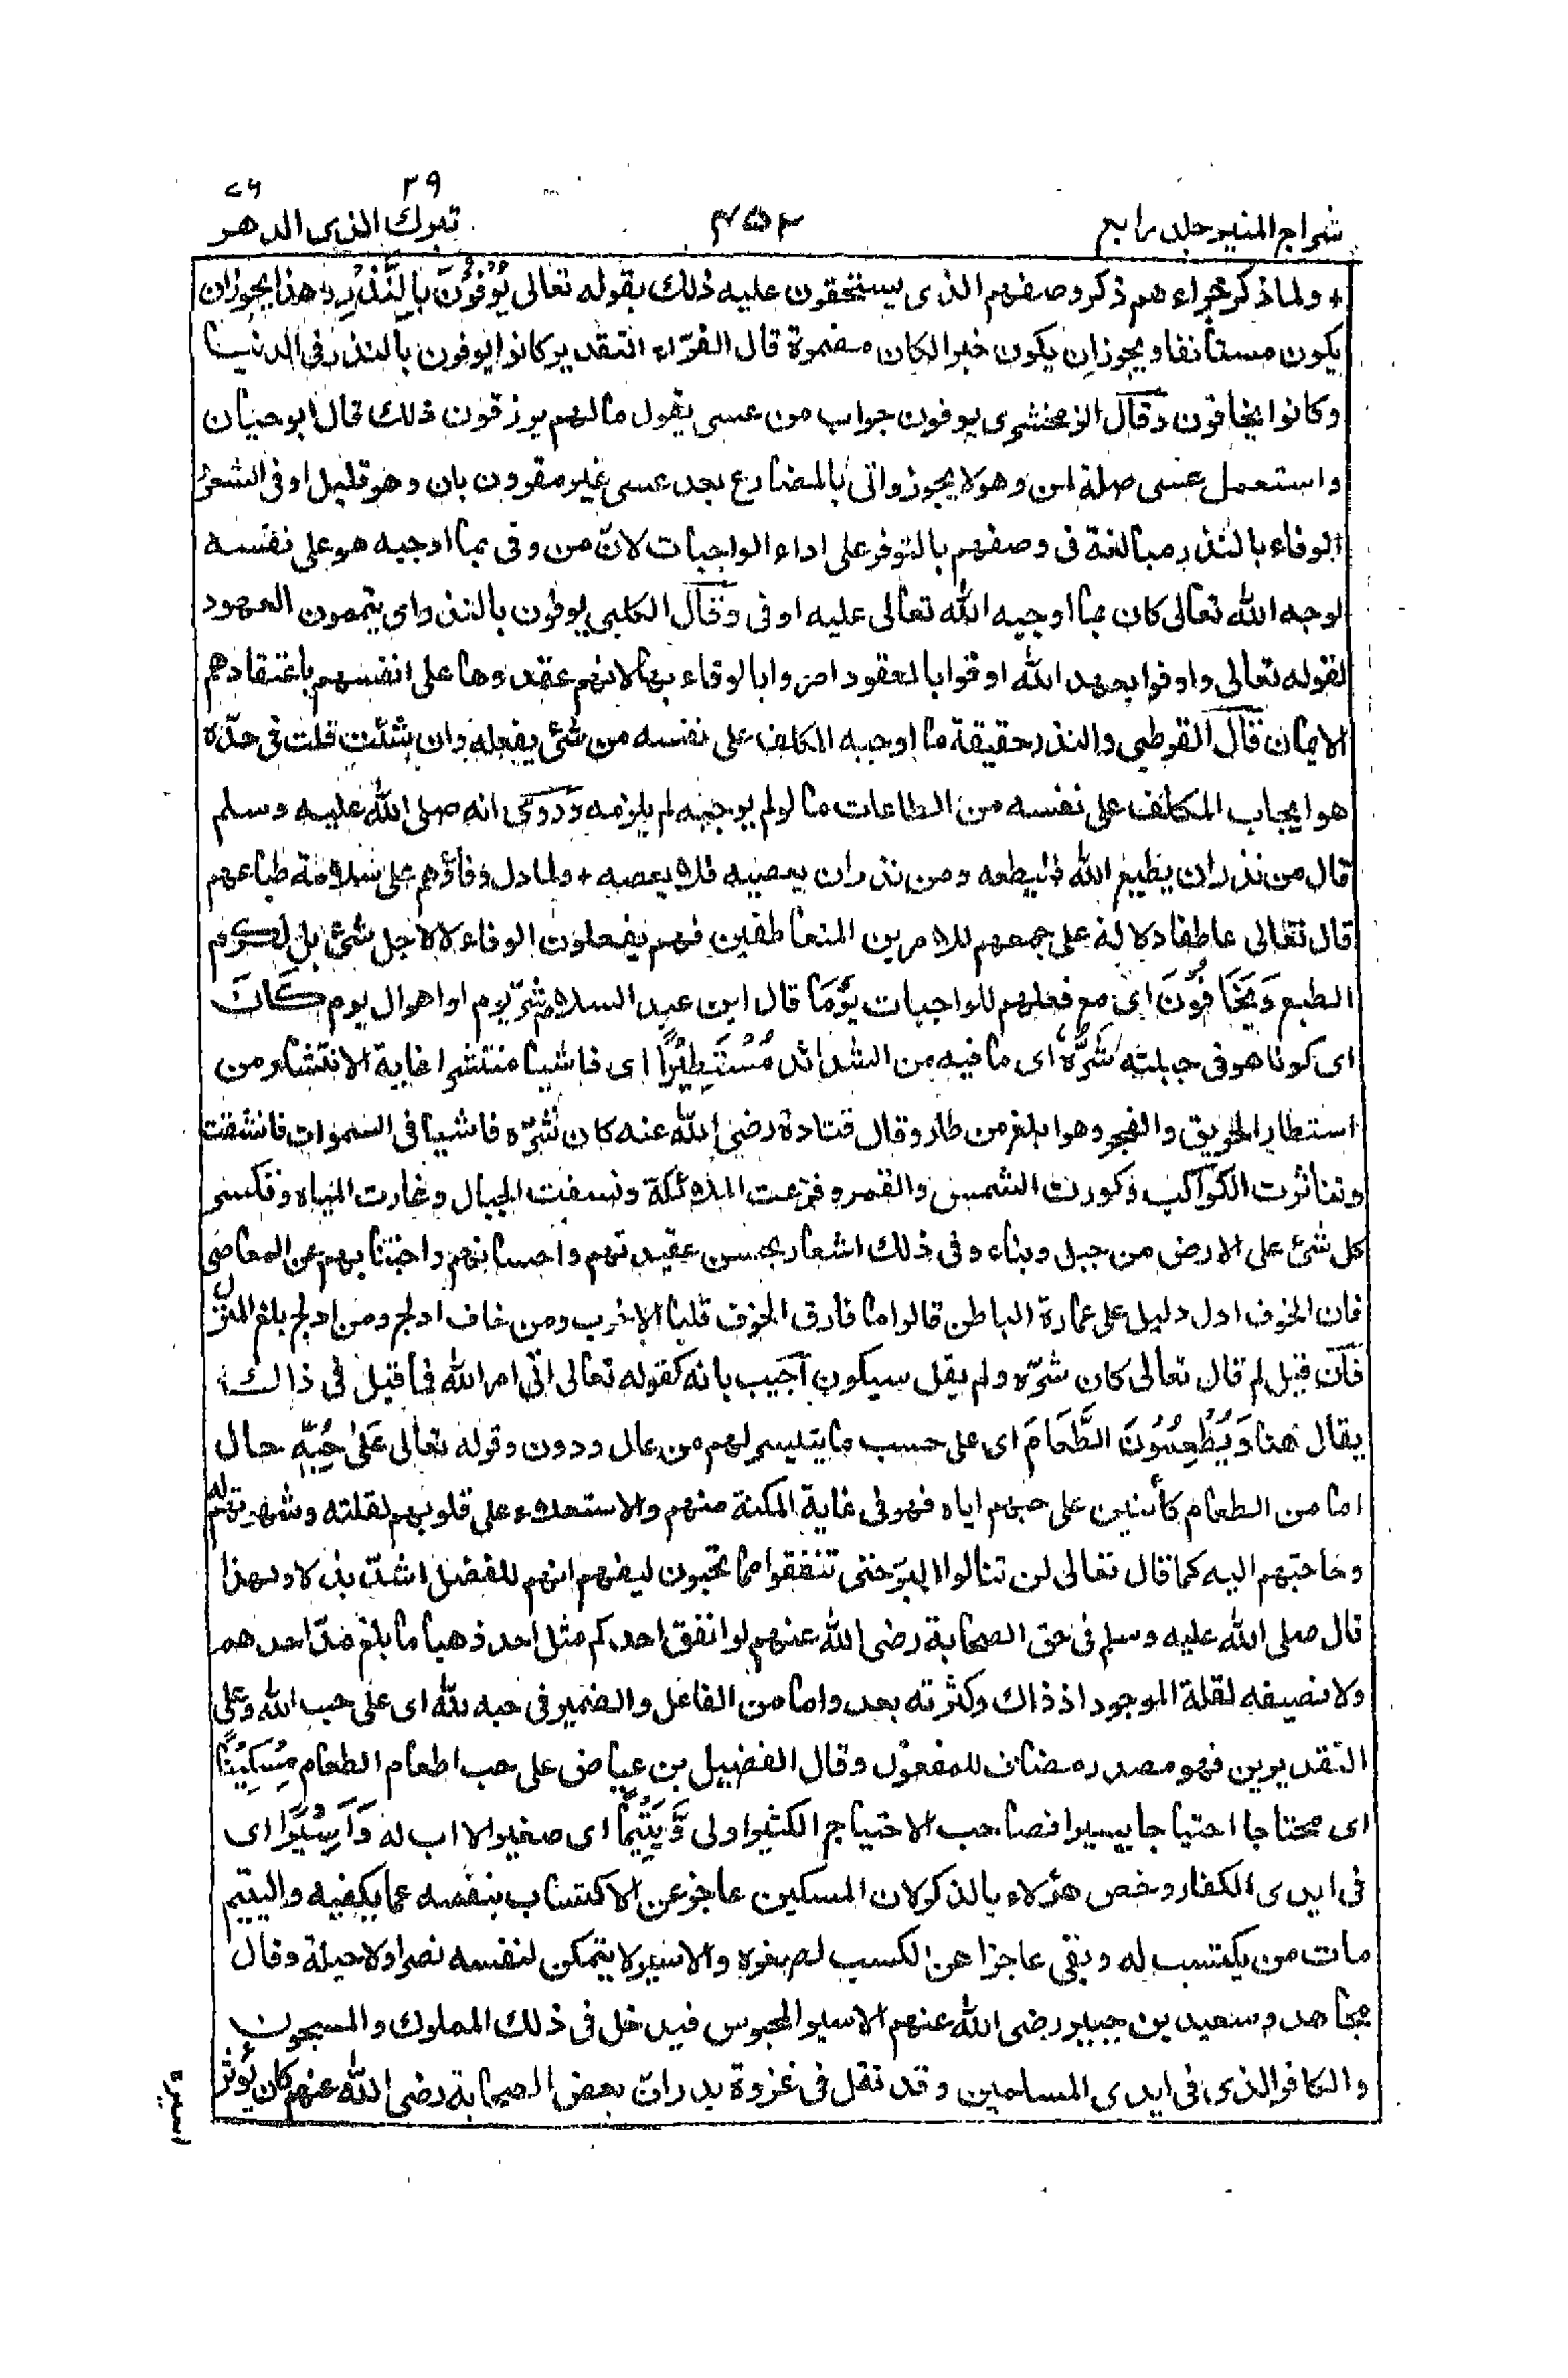 ٢٩ ٧٦
سراج المنير جلد رابع ٤٥٢ تبرك الذى الدهر
+ ولما ذكر جزاءهم ذكر وصفهم الذى يستحقون عليه ذلك بقوله تعالى يُوْفُوْنَ بِالنَّذْرِ وهذا يجوز ان
يكون مستأنفا ويجوز ان يكون خبرا لكان مضمرة قال الفرّاء التقدير كانوا يوفون بالنذر فى الدنيا
وكانوا يخافون وقال الزمخشرى يوفون جواب من عسى يقول ما لهم يرزقون ذلك قال ابو حيان
واستعمل عسى صلة لمن وهو لا يجوز واتى بالمضارع بعد عسى غير مقرون بان وهو قليل او فى الشعر
الوفاء بالنذر مبالغة فى وصفهم بالتوفر على اداء الواجبات لانّ من وفى بما اوجبه هو على نفسه
لوجه الله تعالى كان بما اوجبه الله تعالى عليه اوفى وقال الكلبى يوفون بالنذر اى يتممون العهود
لقوله تعالى واوفوا بعهد الله اوفوا بالعقود امروا بالوفاء بها لانهم عقدوها على انفسهم باعتقادهم
الايمان قال القرطبى والنذر حقيقة ما اوجبه المكلف على نفسه من شئ يفعله وان شئت قلت فى حدّه
هو ايجاب المكلف على نفسه من الطاعات ما لو لم يوجبه لم يلزمه وروى انه صلى الله عليه وسلم
قال من نذر ان يطيع الله فليطعه ومن نذر ان يعصيه فلا يعصه + ولما دل وفاؤهم على سلامة طباعهم
قال تعالى عاطفا دلالة على جمعهم للامرين المتعاطفين فهم يفعلون الوفاء لا لاجل شئ بل لكرم
الطبع وَيَخَافُوْنَ اى مع فعلهم للواجبات يَوْمًا قال ابن عبد السلام شرّ يوم او اهوال يوم كَانَ
اى كونا هو فى جبلته شَرُّهٗ اى ما فيه من الشدائد مُسْتَطِيْرًا اى فاشيا منتشرا غاية الانتشار من
استطار الحريق والفجر وهو ابلغ من طار وقال قتادة رضى الله عنه كان شرّه فاشيا فى السموات فانشقت
وتناثرت الكواكب وكورت الشمس والقمر وفزعت الملائكة ونسفت الجبال وغارت المياه وفكسر
كل شئ على الارض من جبل وبناء وفى ذلك اشعار بحسن عقيدتهم واحسانهم واجتنابهم عن المعاصى
فان الخوف ادل دليل على عمارة الباطن قالوا ما فارق الخوف قلبا الا خرب ومن خاف ادلج ومن ادلج بلغ المنزل
فان قيل لم قال تعالى كان شرّه ولم يقل سيكون اجيب بانه كقوله تعالى اتى امر الله فما قيل فى ذالك
يقال هنا وَيُطْعِمُوْنَ الطَّعَامَ اى على حسب ما يتيسر لهم من عال ودون وقوله تعالى عَلٰى حُبِّهٖ حال
اما من الطعام كائنين على حبهم اياه فهو فى غاية المكنة منهم والاستعلاء على قلوبهم لقلته وشهوتهم له
وحاجتهم اليه كما قال تعالى لن تنالوا البرّ حتى تنفقوا مما تحبون ليفهم انهم للفضل اشدّ بذلا ولهذا
قال صلى الله عليه وسلم فى حق الصحابة رضى الله عنهم لو انفق احدكم مثل احد ذهبا ما بلغ مدّ احدهم
ولا نصيفه لقلة الموجود اذ ذاك وكثرته بعد واما من الفاعل والضمير فى حبه لله اى على حب الله وعلى
التقديرين فهو مصدر مضاف للمفعول وقال الفضيل بن عياض على حب اطعام الطعام مِسْكِيْنًا
اى محتاجا احتياجا يسيرا فصاحب الاحتياج الكثير اولى وَّيَتِيْمًا اى صغيرا لا اب له وَاَسِيْرًا اى
فى ايدى الكفار وخص هؤلاء بالذكر لان المسكين عاجز عن الاكتساب بنفسه عما يكفيه واليتيم
مات من يكتسب له وبقى عاجزا عن الكسب لصغره والاسير لا يتمكن لنفسه نصرا ولا حيلة وقال
مجاهد وسعيد بن جبير رضى الله عنهم الاسير المحبوس فيدخل فى ذلك المملوك والمسجون
والكافر الذى فى ايدى المسلمين وقد نقل فى غزوة بدر انّ بعض الصحابة رضى الله عنهم كان يؤثر
اسيره